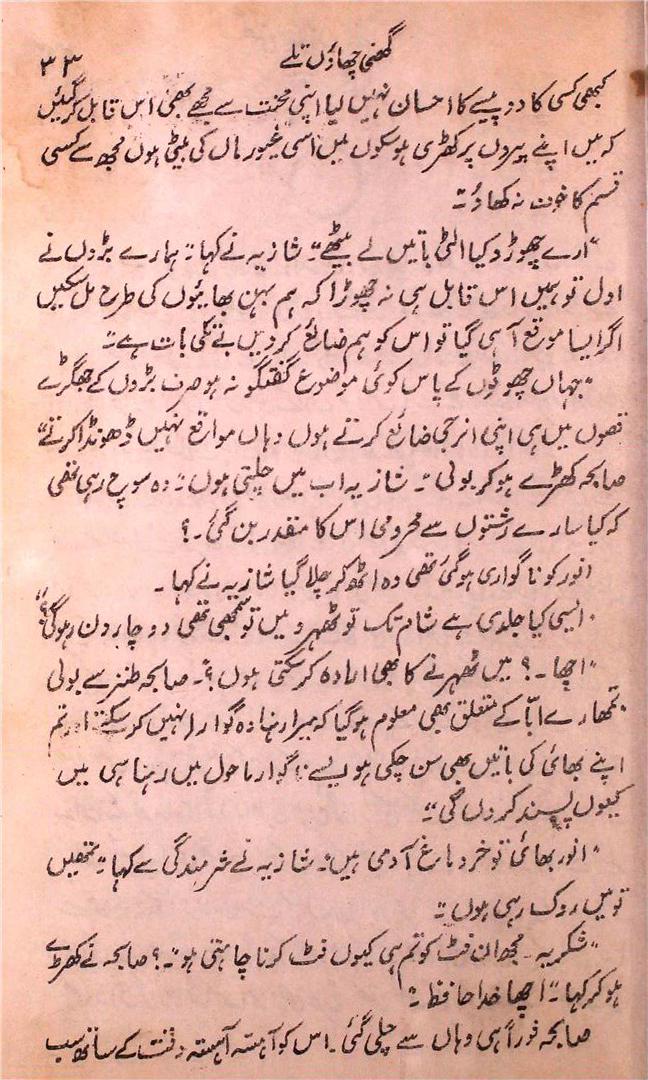 گھنی چھاؤں تلے
۳۳
کبھی کسی کا دو پیسے کا احسان نہیں لیا اپنی محنت سے مجھے بھی اس قابل کر گئیں
کہ میں اپنے پیروں پر کھڑی ہو سکوں میں اسی غیور ماں کی بیٹی ہوں مجھ سے کسی
قسم کا خوف نہ کھاؤ"۔
"ارے چھوڑو کیا الٹی باتیں لے بیٹھے"۔ شازیہ نے کہا "ہمارے بڑوں نے
اول تو ہمیں اس قابل ہی نہ چھوڑا کہ ہم بہن بھائیوں کی طرح مل سکیں
اگر ایسا موقع آ ہی گیا تو اس کو ہم ضائع کر دیں بے تکی بات ہے"۔
"جہاں چھوٹوں کے پاس کوئی موضوع گفتگو نہ ہو صرف بڑوں کے جھگڑے
قصوں میں ہی اپنی انرجی ضائع کرتے ہوں وہاں مواقع نہیں ڈھونڈا کرتے"
صابحہ کھڑے ہو کر بولی "۔ شازیہ اب میں چلتی ہوں"۔ وہ سوچ رہی تھی
کہ کیا سارے رشتوں سے محرومی اس کا مقدر بن گئی۔؟
انور کو ناگواری ہو گئی تھی وہ اٹھ کر چلا گیا شازیہ نے کہا۔
"ایسی کیا جلدی ہے شام تک تو ٹھہرو میں تو سمجھی تھی دو چار دن رہو گی؟"
"اچھا۔؟ میں ٹھہرنے کا بھی ارادہ کر سکتی ہوں؟"۔ صابحہ طنز سے بولی
"تمھارے ابّا کے متعلق بھی معلوم ہو گیا کہ میرا رہنا وہ گوارا نہیں کر سکتے اور تم
اپنے بھائی کی باتیں بھی سن چکی ہو ایسے ناگوار ماحول میں رہنا ہی میں
کیوں پسند کروں گی"۔
"انور بھائی تو خر دماغ آدمی ہیں"۔ شازیہ نے شرمندگی سے کہا "تمھیں
تو میں روک رہی ہوں"۔
"شکریہ۔ مجھ ان فٹ کو تم ہی کیوں فٹ کرنا چاہتی ہو"۔؟ صابحہ نے کھڑے
ہو کر کہا "اچھا خدا حافظ"۔
صابحہ فوراً ہی وہاں سے چلی گئی۔ اس کو آہستہ آہستہ وقت کے ساتھ سب